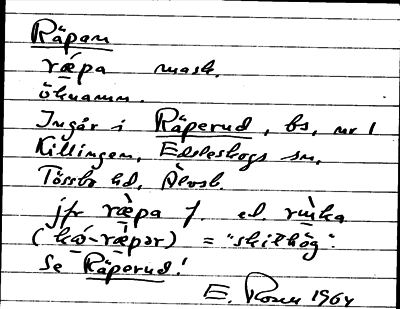 Räpan
ræ̀pa mask.
öknamn.
Ingår i Räperud, bs, nr 1
Killingen, Edsleskogs sn,
Tössbo hd, Älvsb.
jfr ræ̀pa f. el. ruka
(kó-ræ̀pər) = "skithög".
Se Räperud!
E. Rosén 1964